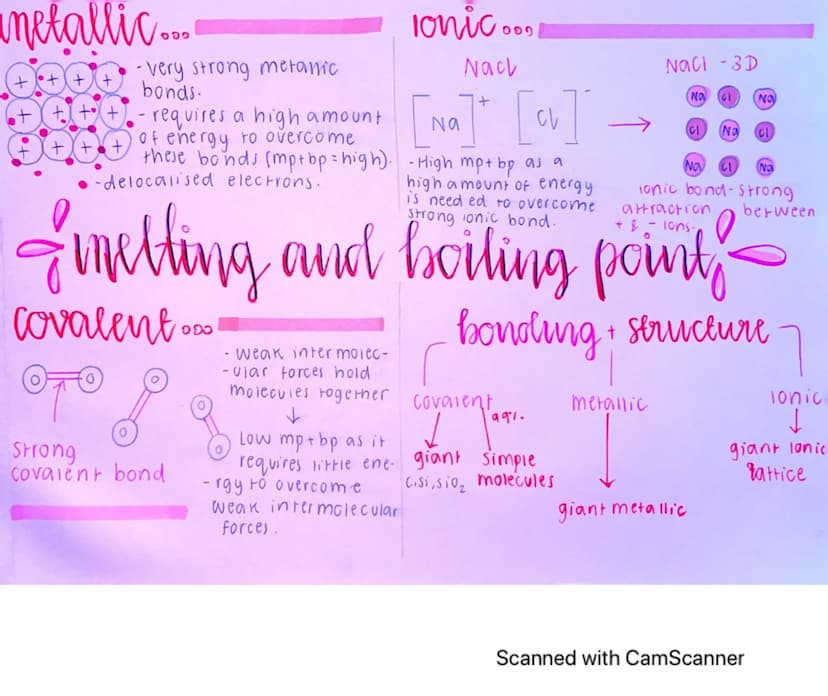 metallic...
+ + + +
+ + + +
+ + + +
- very strong metallic
bonds.
- requires a high amount
of energy to overcome
these bonds (mp+bp = high).
• - delocalised electrons.
ionic...
NaCl
[Na]+ [Cl]-
→
- High mp+bp as a
high amount of energy
is needed to overcome
strong ionic bond.
NaCl - 3D
Na Cl Na
Cl Na Cl
Na Cl Na
ionic bond - strong
attraction between
+ & - ions.
melting and boiling point
covalent...
O O
O
O
O
O
strong
covalent bond
- weak intermolec-
-ular forces hold
molecules together
↓
Low mp+bp as it
requires little ene-
-rgy to overcome
weak intermolecular
forces.
bonding + structure
covalent
99%.
giant simple
C, Si, SiO2 molecules
metallic
giant metallic
ionic
giant ionic
lattice
Scanned with CamScanner